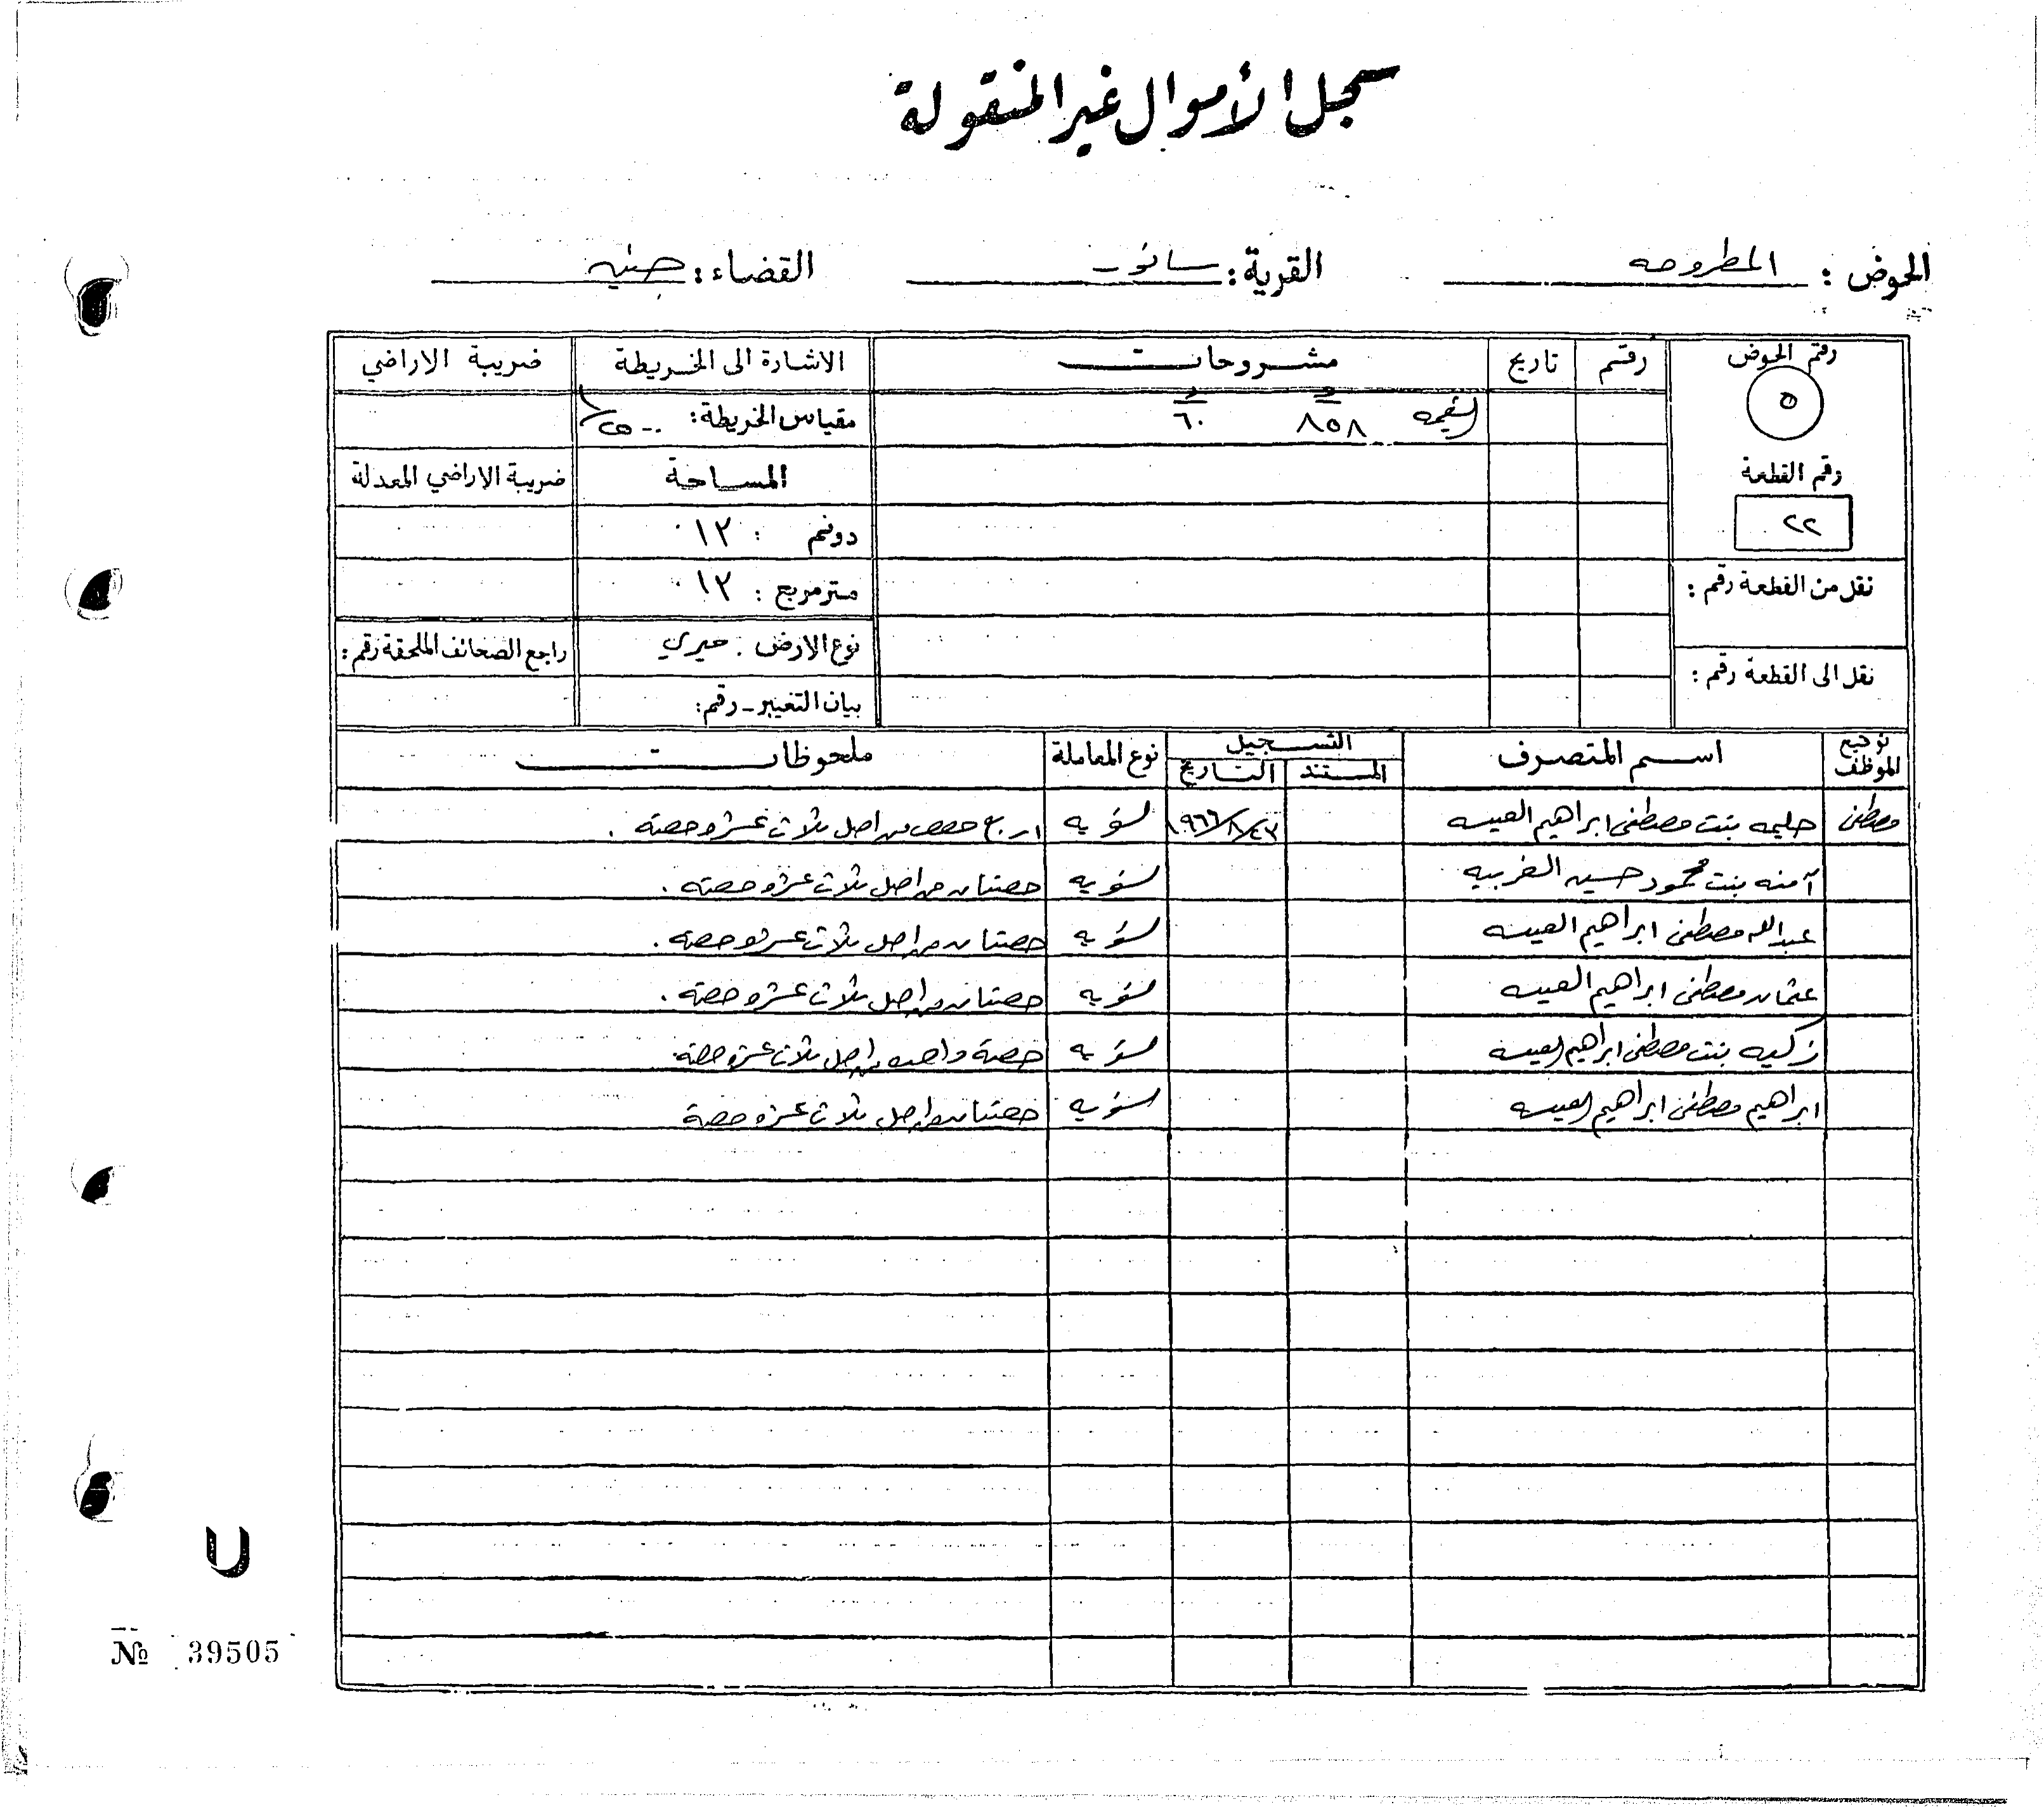 سجل الأموال غير المنقولة
الحوض : المطروحه القرية : سانور القضاء : جنين
رقم الحوض رقم تاريخ مشروحات الاشارة الى الخريطة ضريبة الاراضي
٥ القيمه ٨٥٨ ٦٠ مقياس الخريطة : ١/٢٥٠٠
رقم القطعة المساحة ضريبة الاراضي المعدلة
٢٢ دونم : ١٢
نقل من القطعة رقم : متر مربع : ١٢
نوع الارض : ميري راجع الصحائف الملحقة رقم :
نقل الى القطعة رقم : بيان التغيير - رقم :
توقيع الموظف اسم المتصرف التسجيل نوع المعاملة ملحوظات
المستند التاريخ
مصطفى حليمه بنت مصطفى ابراهيم العيسه ١٩٦٦/٨/٢٣ تسويه اربع حصص من اصل ثلاث عشرة حصته .
آمنه بنت محمود حسين الغربيه تسويه حصتان من اصل ثلاث عشرة حصته .
عبدالله مصطفى ابراهيم العيسه تسويه حصتان من اصل ثلاث عشرة حصته .
عثمان مصطفى ابراهيم العيسه تسويه حصتان من اصل ثلاث عشرة حصته .
زكيه بنت مصطفى ابراهيم العيسه تسويه حصة واحده من اصل ثلاث عشرة حصته .
ابراهيم مصطفى ابراهيم العيسه تسويه حصتان من اصل ثلاث عشرة حصة
№ 39505